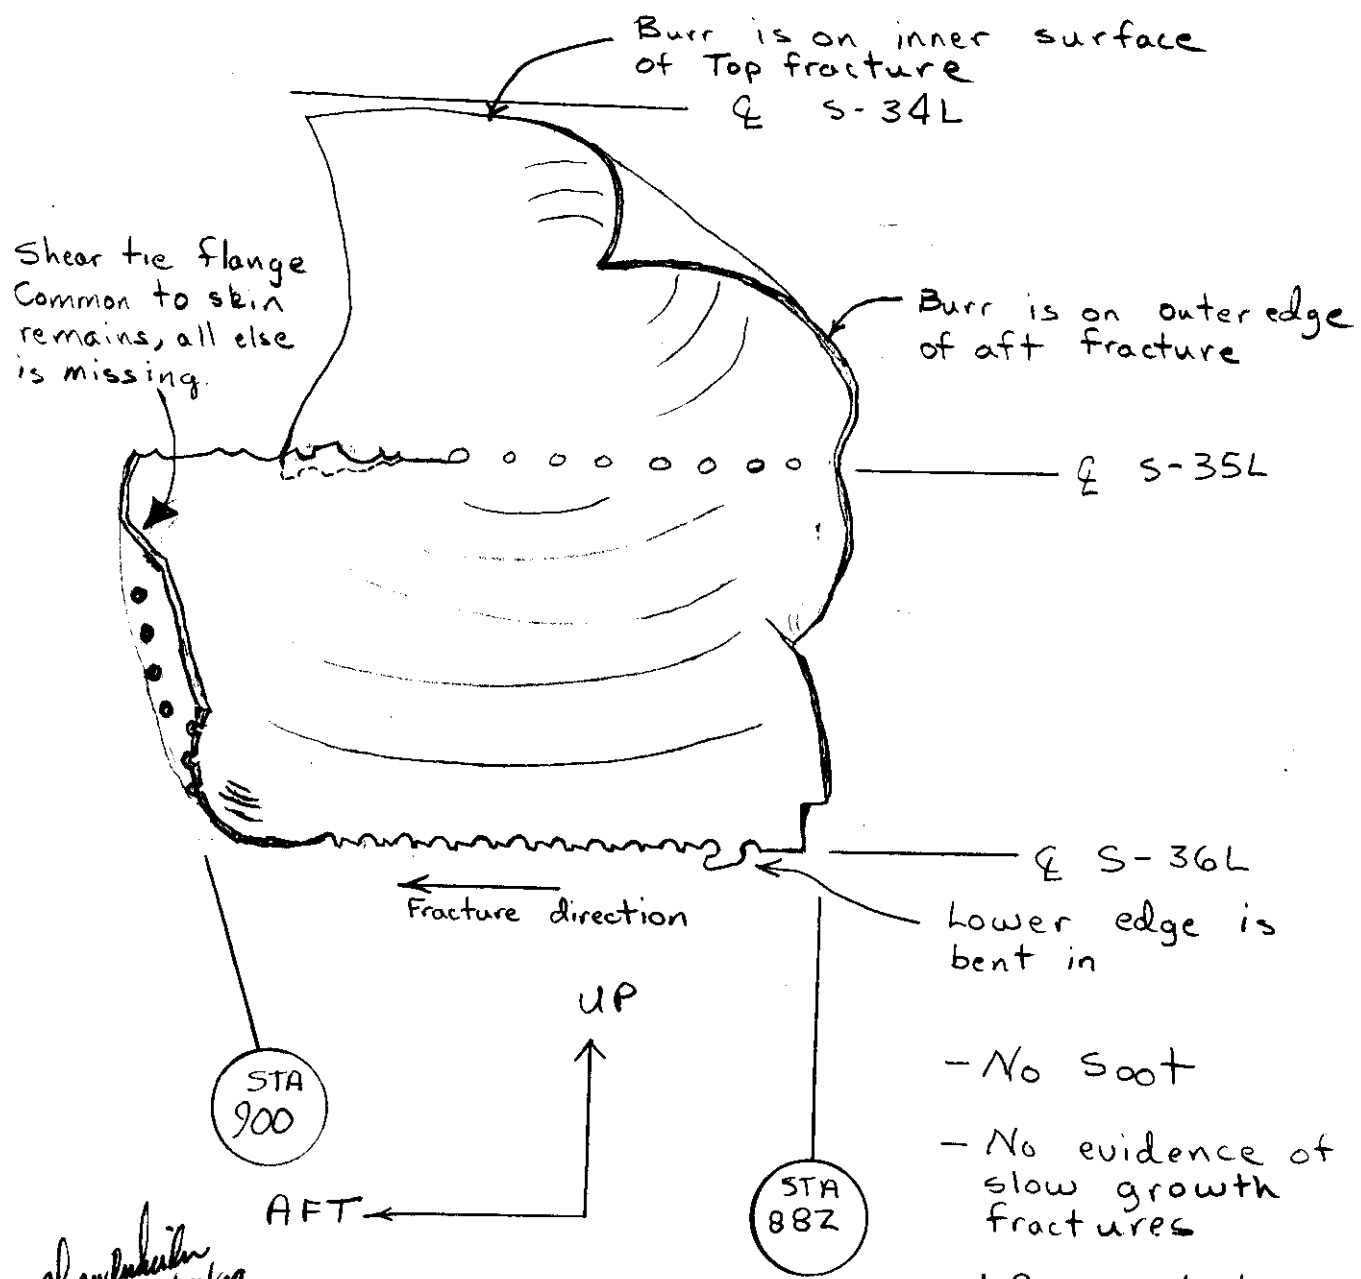 Burr is on inner surface
of Top fracture
℄ S-34L
Shear tie flange
Common to skin
remains, all else
is missing.
Burr is on outer edge
of aft fracture
℄ S-35L
℄ S-36L
Fracture direction
Lower edge is
bent in
UP
STA
900
AFT
STA
882
- No Soot
- No evidence of
slow growth
fractures